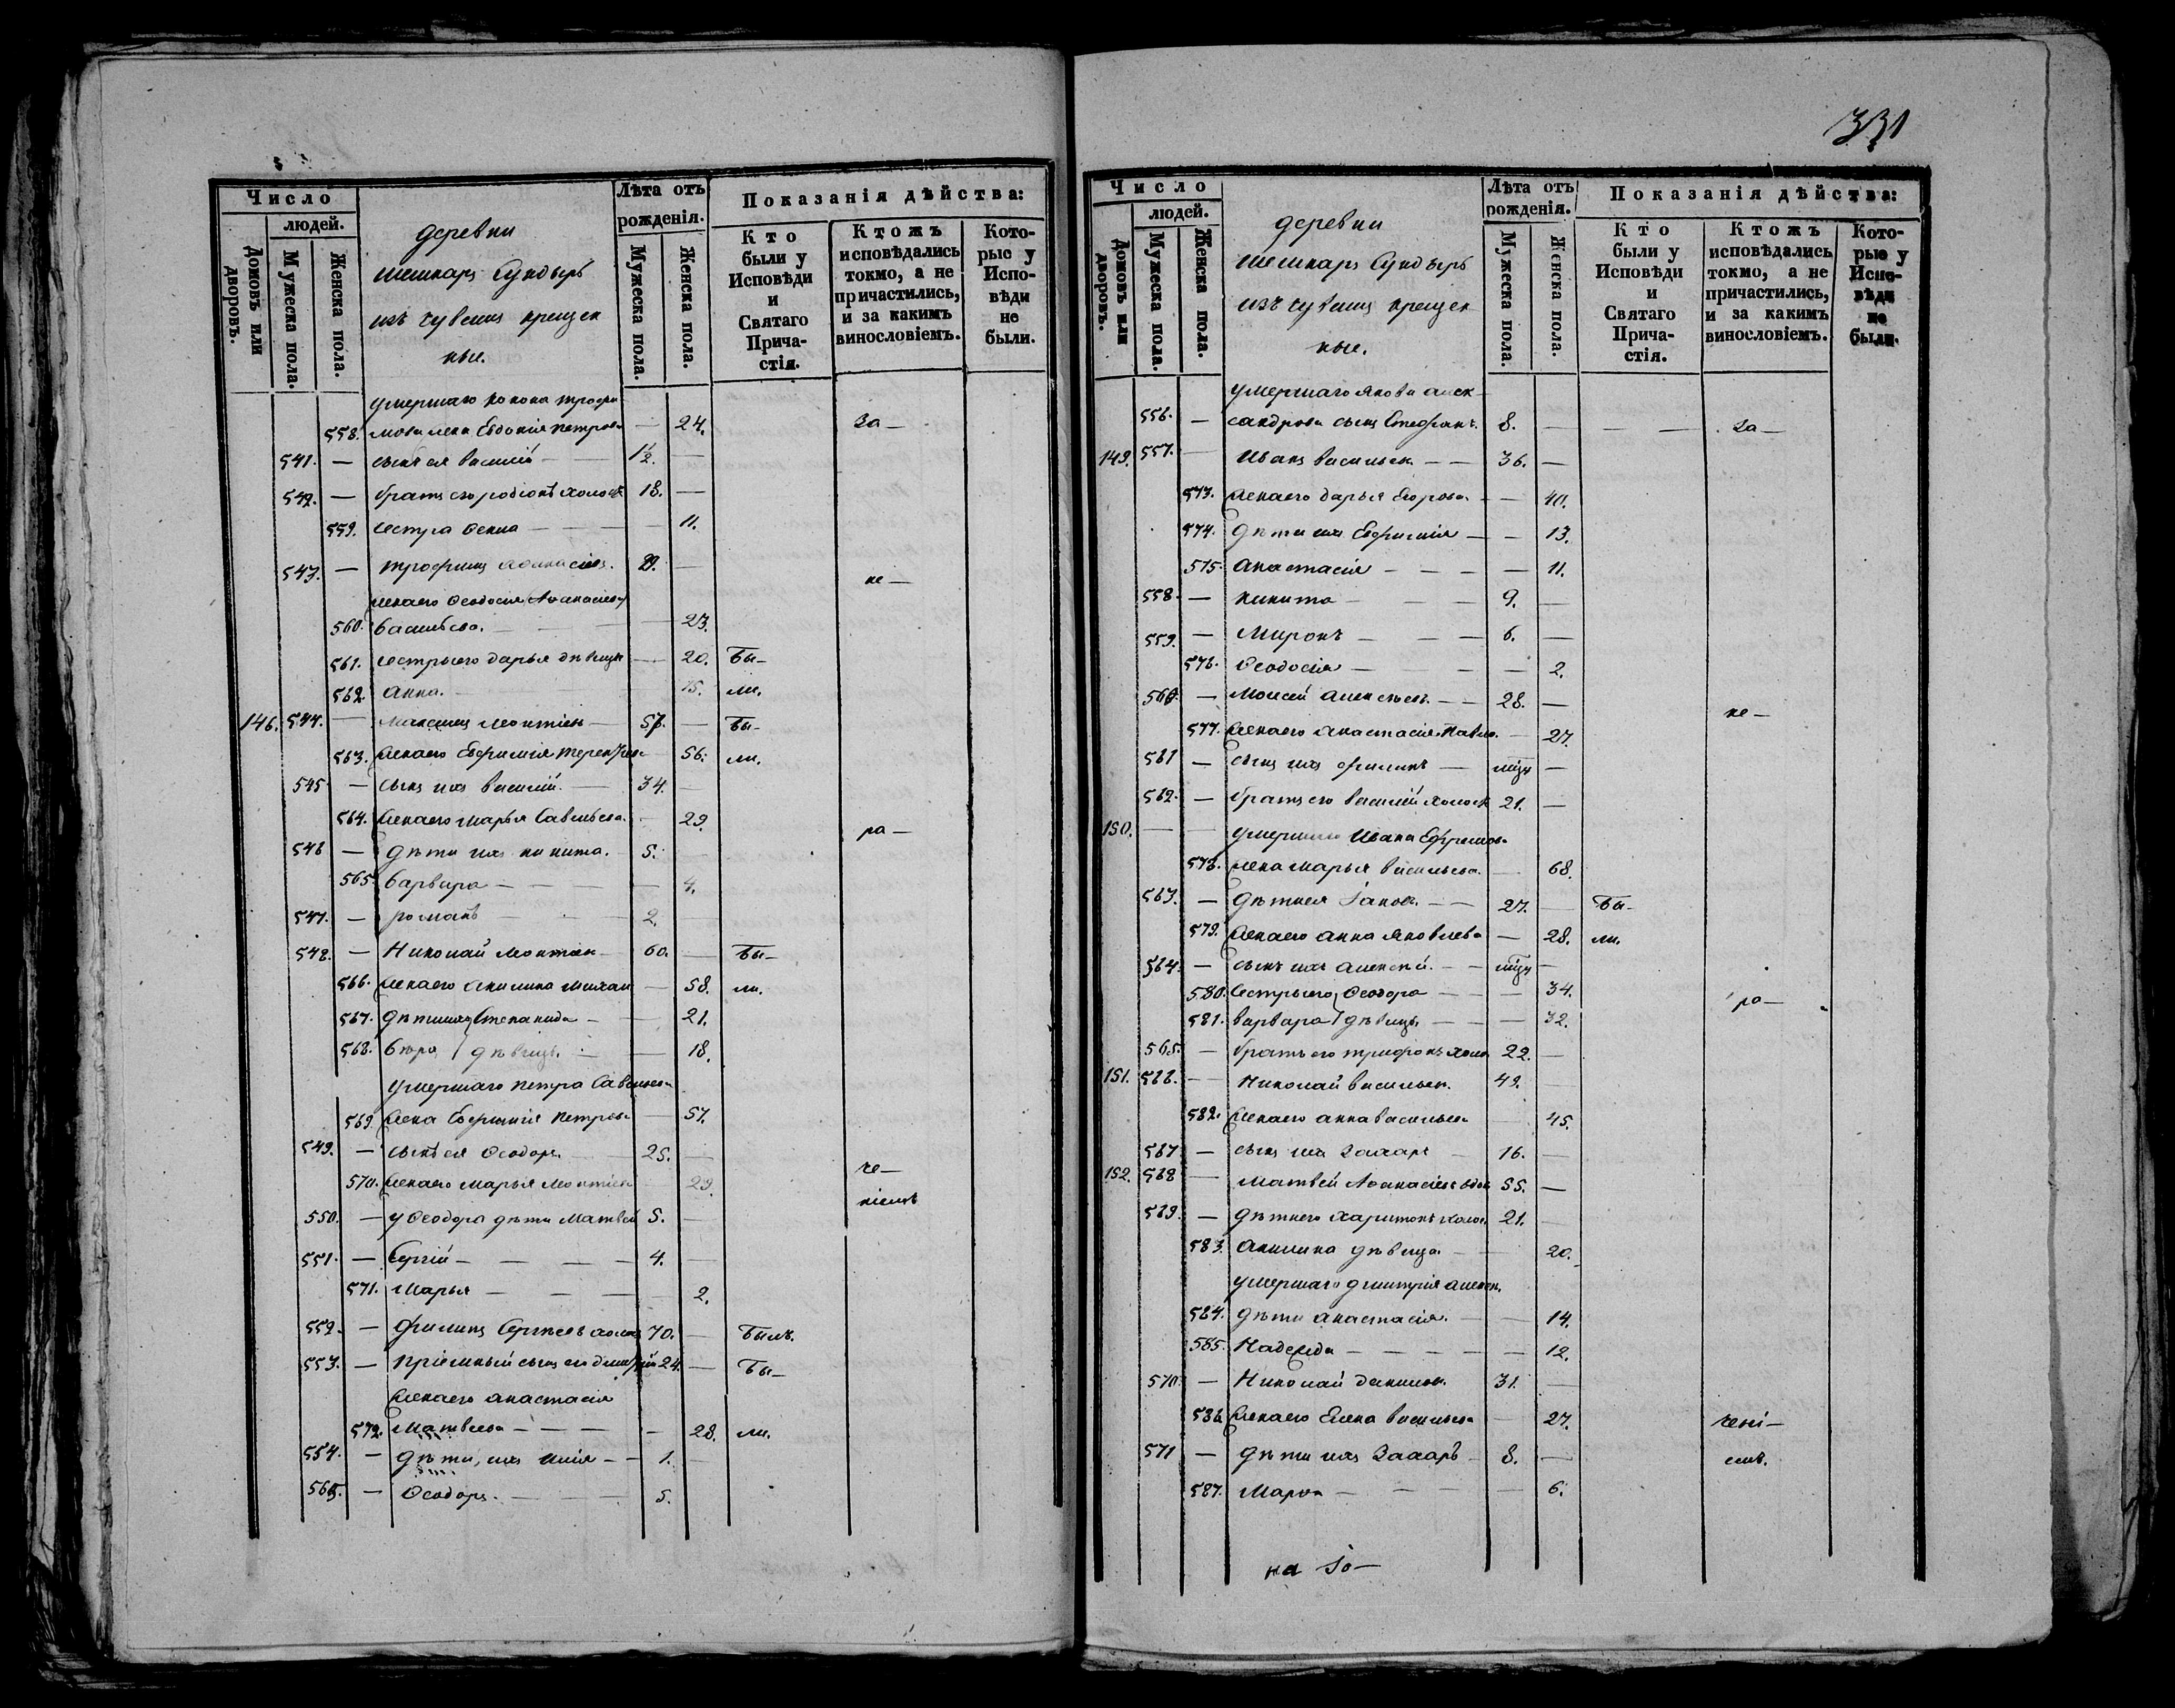 331
Число
людей.
Домовъ или дворовъ.
Мужеска пола.
Женска пола.
деревни
шешкаръ Сундырь
изъ чувашъ крещен
ные.
Лѣта отъ рожденія.
Мужеска пола.
Женска пола.
Показанія дѣйства:
Кто были у Исповѣди и Святаго Прича- стія.
Ктожъ исповѣдались токмо, а не причастились, и за какимъ винословіемъ.
Кото- рые у Испо- вѣди не были.
умершаго конона трофи
558. мова жена Евдокія петрова — 24. За—
541. — сынъ ея василій — 1½. —
542. — братъ его родіонъ холос 18. —
559. сестра — — 11.
543. — трофимъ афанасіев. —
не—
жена его Ѳеодосія Афанасіева
560. васильева. — 23.
561. сестры его дарья дѣвица — 20. Бы—
562. анна. — 15. ли.
146. 544. — максимъ леонтіев — 57. — Бы—
563. жена его Евфимія терентіев — 56. ли.
545. — сынъ ихъ василій. — 34. —
564. жена его марья Савельева. — 29.
ра—
546 — дѣти ихъ никита. — 5. —
565. варвара — — — 4.
547. — романъ — — 2.
548. — Николай леонтіев — 60. — Бы—
566. жена его акилина михаи — 58. ли.
567. дѣти ихъ Степанида — — 21.
568. вѣра } дѣвицы. — — 18.
умершаго петра Савельева
569. жена Евфимія петрова — 57.
549. — сынъ ея Ѳеодоръ — 25. —
че—
570. жена его марья леонтіев — 29.
ніемъ
550. — у Ѳеодора дѣти матвей 5. —
551. — Сергій — — — 4. —
571. марья — — — 2.
552. — филипъ Сергѣевъ холос 70. — Былъ.
553. — пріемный сынъ его димитрій 24. — Бы—
жена его анастасія
572. матвеева — — — 28. ли.
554. — дѣти, ихъ илія — — 1. —
565. — Ѳеодоръ. — — 5.
Число
людей.
Домовъ или дворовъ.
Мужеска пола.
Женска пола.
деревни
шешкаръ Сундырь
изъ чувашъ крещен
ные.
Лѣта отъ рожденія.
Мужеска пола.
Женска пола.
Показанія дѣйства:
Кто были у Исповѣди и Святаго Прича- стія.
Ктожъ исповѣдались токмо, а не причастились, и за какимъ винословіемъ.
Кото- рые у Испо- вѣди не были.
умершаго якова алек—
556. — сандрова сынъ Стефанъ. 8. — — — За—
149. 557. — Иванъ васильев. — — 36. —
573. жена его дарья Егорова. — — 40.
574. дѣти ихъ Евфимія — — 13.
575. анастасія — — — — 11.
558. — никита — — — 9. —
559. — миронъ — — — 6. —
576. Ѳеодосія — — — 2.
560. — моисей алексѣевъ. — — 28. —
не—
577. жена его анастасія павло. — 27.
561 — сынъ ихъ филипъ — —
562. — братъ его василій холос 21. —
150. — — умершаго Ивана Ефремова
578. жена марья васильева. — 68.
563. — дѣти ея Іаковъ. — — 27. — Бы—
579. жена его анна яковлева — 28. ли.
564. — сынъ ихъ алексѣй. — — —
580. сестры его } Ѳеодора — — 34.
ра—
581. варвара } дѣвицы. — — 32.
565. — братъ его трифонъ холо. 22. —
151. 566. — Николай васильев. 49.
582. жена его анна васильева — 45.
567. — сынъ ихъ Захаръ — 16. —
152. 568 — матвей Афанасіевъ вдов 55. —
569. — дѣти его харитонъ холос. 21. —
583. акилина дѣвица. — — 20.
умершаго димитрія алексѣ.
584. дѣти анастасія. — — 14.
585. Надежда — — — — 12.
570. — Николай данилов. 31. —
586. жена его Елена васильева — 27. чені—
571 — дѣти ихъ Захаръ — 8. — емъ.
587. марѳа — — — 6.
на